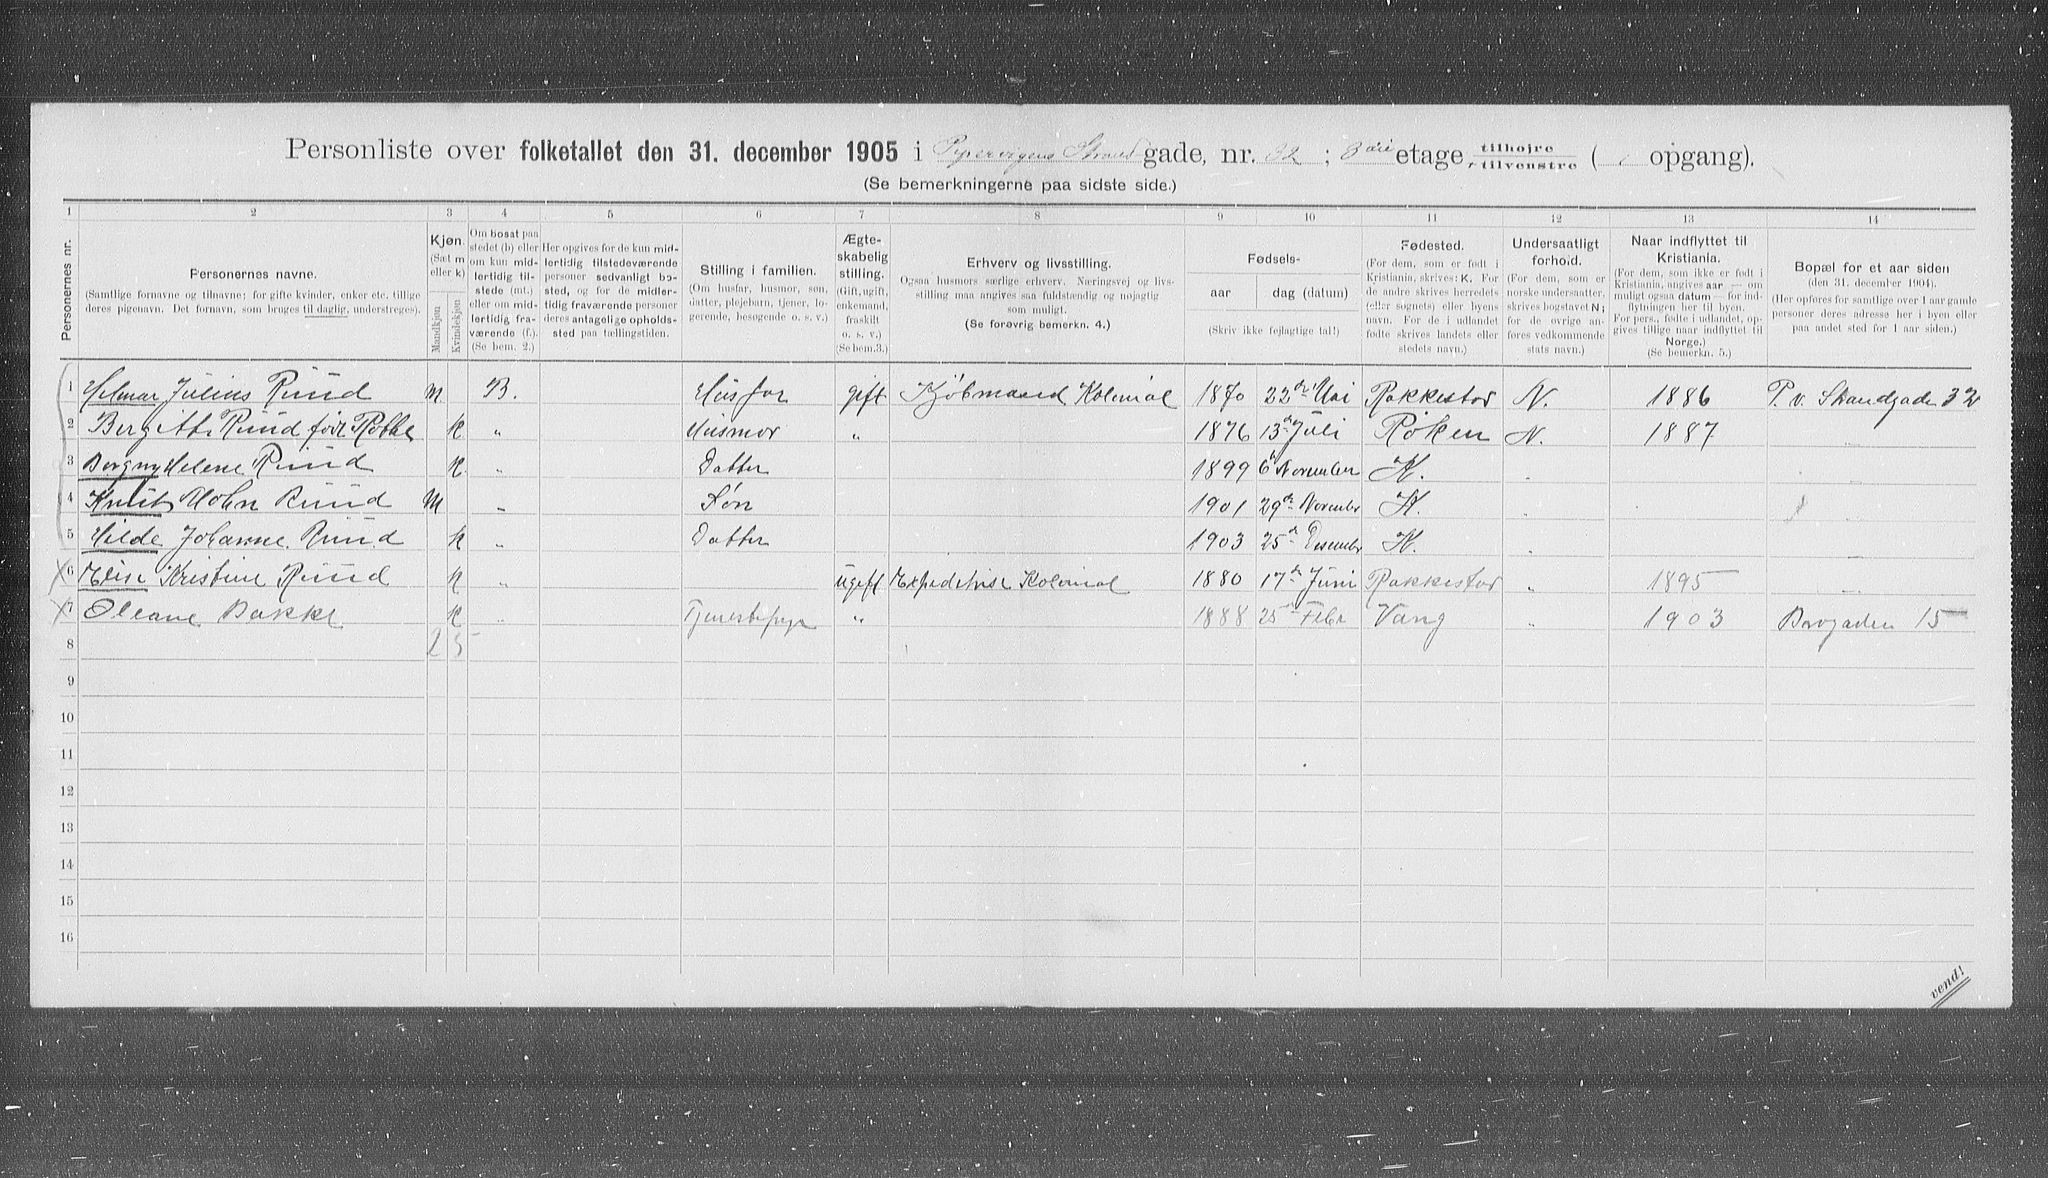 Personliste over folketallet den 31. december 1905 i Pipervigens Strand gade, nr. 32 ; 3die etage tilhøjre / tilvenstre ( opgang).
(Se bemerkningerne paa sidste side.)
1 2 3 4 5 6 7 8 9 10 11 12 13 14
Personernes nr.
Personernes navne.
(Samtlige fornavne og tilnavne; for gifte kvinder, enker etc. tillige deres pigenavn. Det fornavn, som bruges til daglig, understreges).
Kjøn.
(Sæt m eller k)
Mandkjøn
Kvindekjøn
Om bosat paa stedet (b) eller om kun midlertidig tilstede (mt.) eller om midlertidig fraværende (f.). (Se bem. 2.)
Her opgives for de kun midlertidig tilstedeværende personer sedvanligt bosted, og for de midlertidig fraværende personer deres antagelige opholdssted paa tællingstiden.
Stilling i familien.
(Om husfar, husmor, søn, datter, plejebarn, tjener, logerende, besøgende o. s. v.)
Ægteskabelig stilling.
(Gift, ugift, enkemand, fraskilt o. s. v.)
(Se bem.3.)
Erhverv og livsstilling.
Ogsaa husmors særlige erhverv. Næringsvej og livsstilling maa angives saa fuldstændig og nøjagtig som muligt.
(Se forøvrig bemerkn. 4.)
Fødsels-
aar
dag (datum)
(Skriv ikke fejlagtige tal!)
Fødested.
(For dem, som er født i Kristiania, skrives: K. For de andre skrives herredets (eller sognets) eller byens navn. For de i udlandet fødte skrives landets eller stedets navn.)
Undersaatligt forhold.
(For dem, som er norske undersaatter, skrives bogstavet N; for de øvrige anføres vedkommende stats navn.)
Naar indflyttet til Kristiania.
(For dem, som ikke er født i Kristiania, angives aar — om muligt ogsaa datum — for indflytningen her til byen. For pers., fødte i udlandet, opgives tillige naar indflyttet til Norge.)
(Se bemerkn. 5.)
Bopæl for et aar siden
(den 31. december 1904).
(Her opføres for samtlige over 1 aar gamle personer deres adresse her i byen eller paa andet sted for 1 aar siden.)
1 Helmar Julius Ruud m B. Husfar gift Kjøbmand Kolonial 1870 22de Mai Rakkestad N. 1886 P. v. Strandgade 32
2 Bergitte Ruud født k " Husmor " 1876 13de Juli Røken N. 1887 "
3 Borgny Helene Ruud k. " Datter 1899 6 November K. "
4 Knut John Ruud m " Søn 1901 29de November K. "
5 Hilde Johanne Ruud k " Datter 1903 25de Desember K. "
6 Elise Kristine Ruud k " ugift Expeditrise Kolonial 1880 17de Juni Rakkestad " 1895 "
7 Oleane Bakke k " Tjenestepige " 1888 25de Febr Vang " 1903 15
8 2 5
9
10
11
12
13
14
15
16
vend!